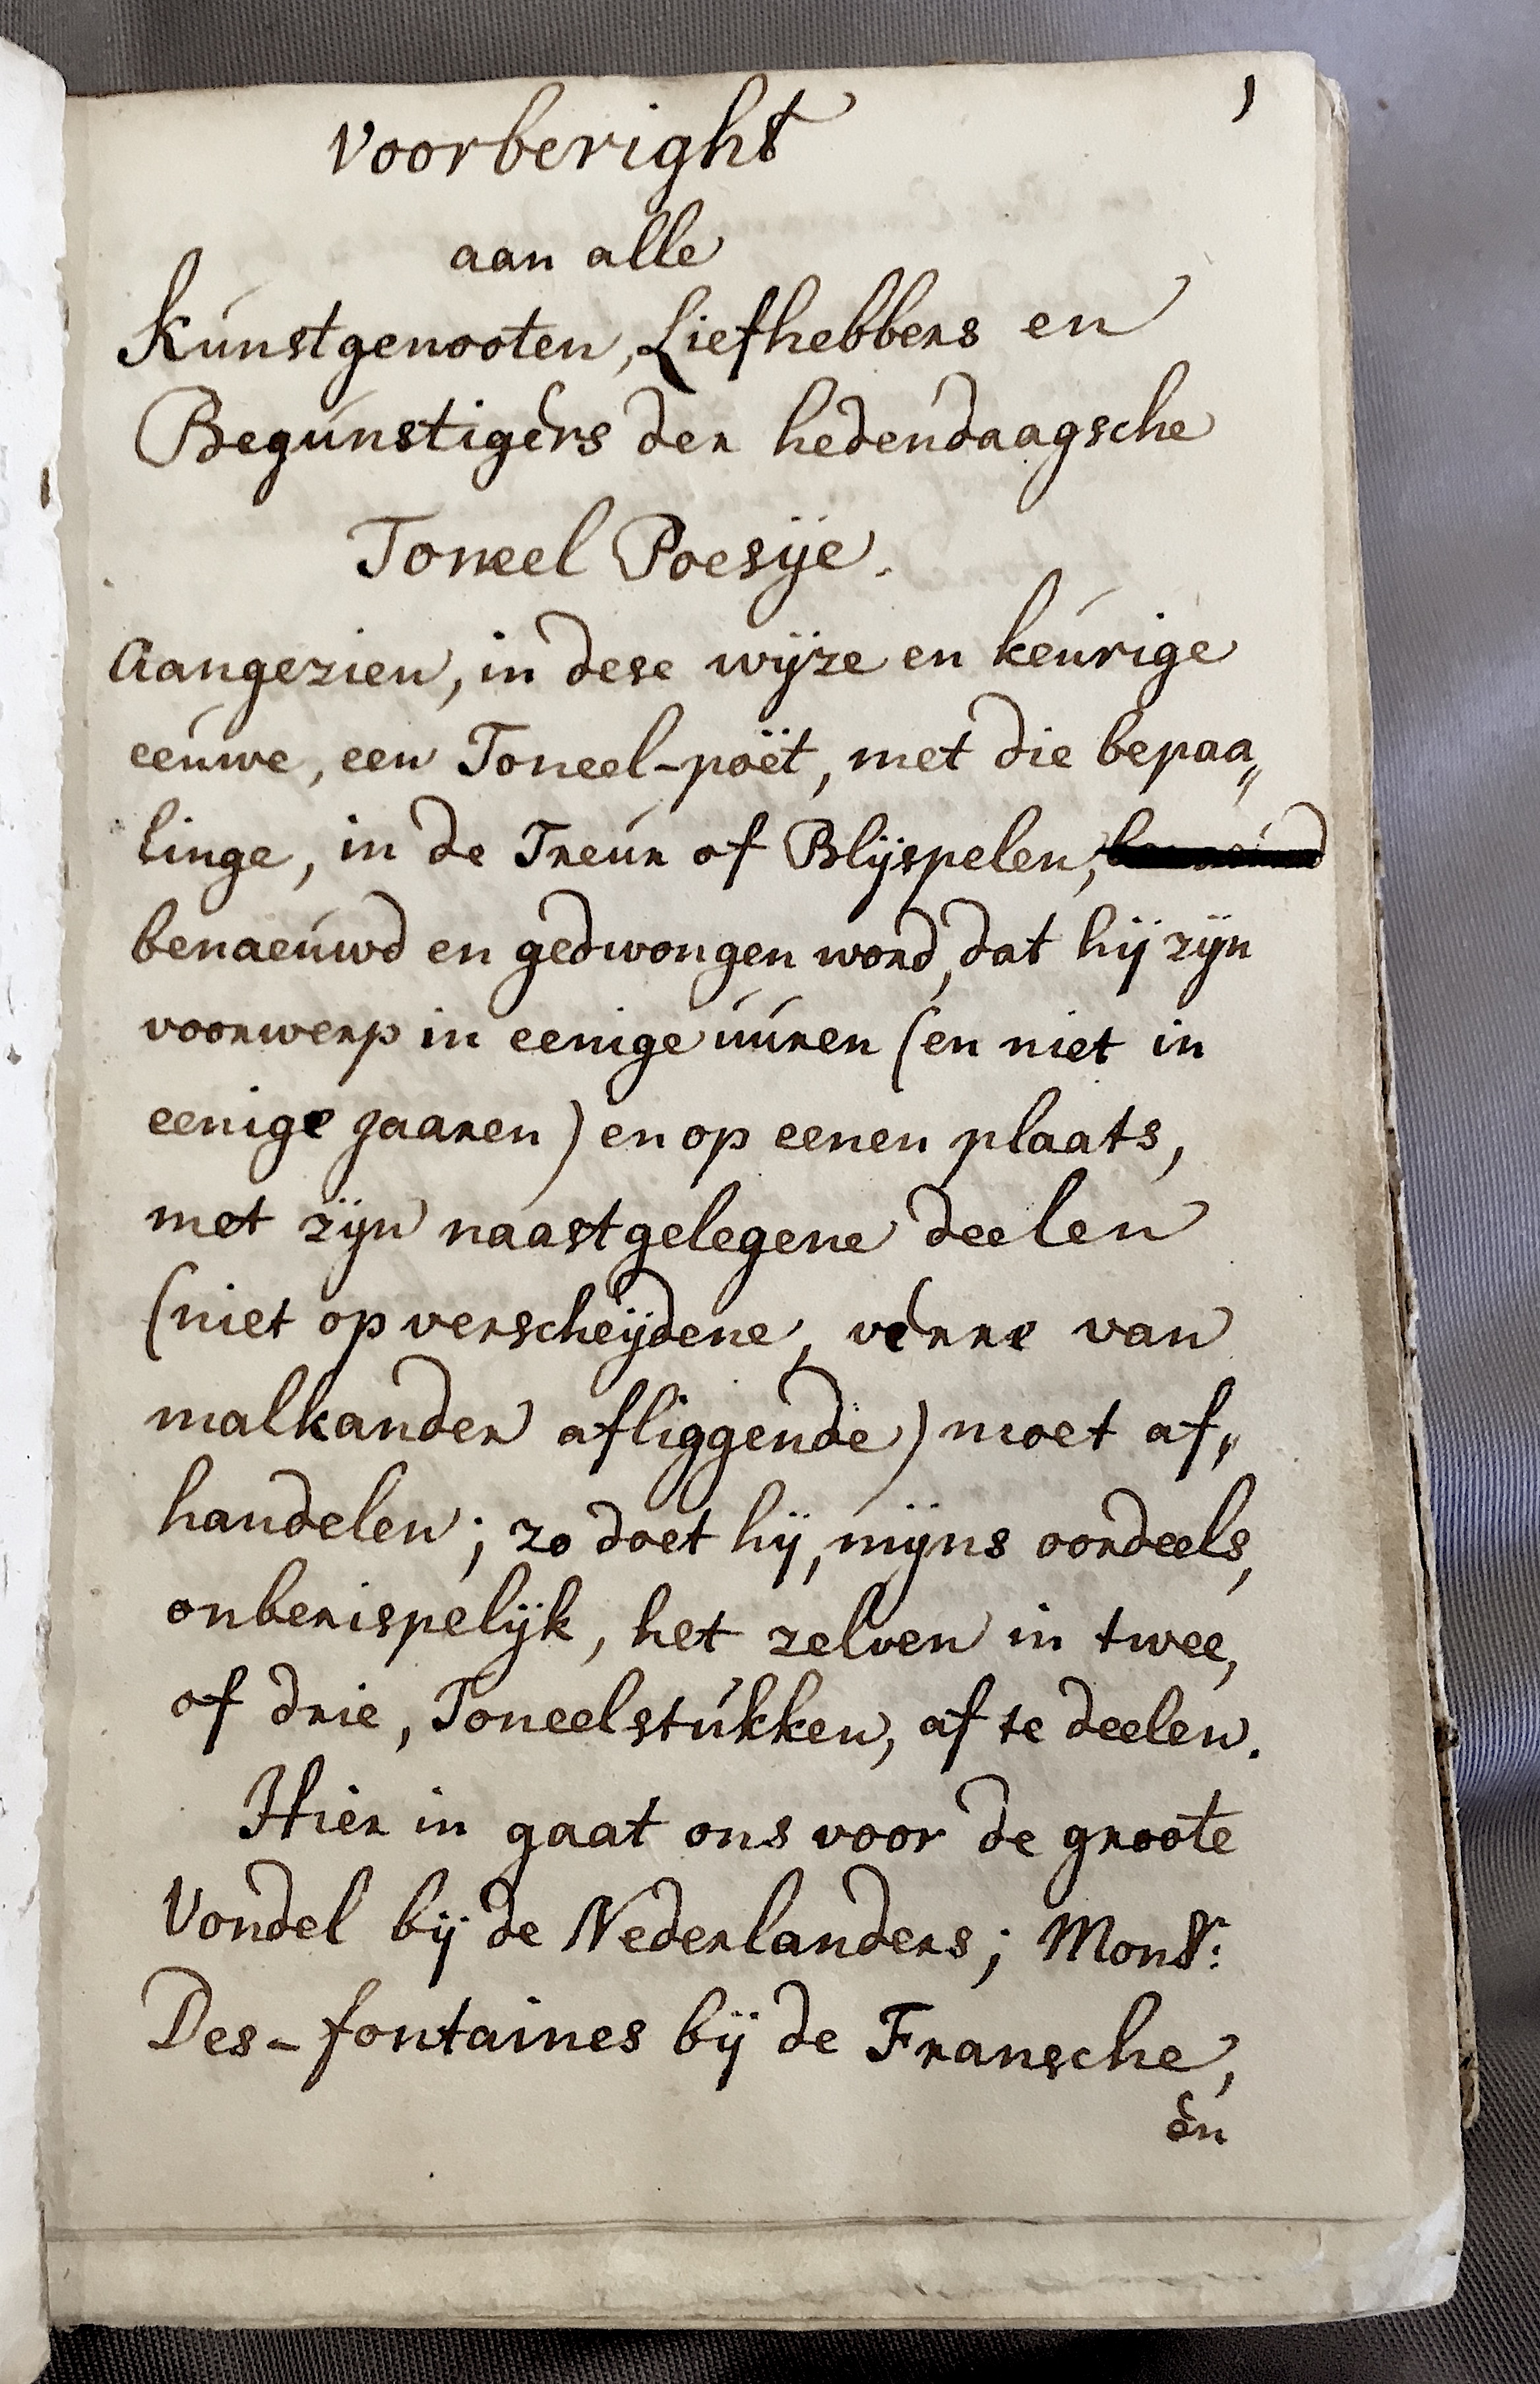 1
Voorberight
aan alle
Kunstgenooten, Liefhebbers en
Begunstigers der hedendaagsche
Toneel Poesÿe.
Aangezien, in dese wÿze en keurige
eeuwe, een Toneel-poët, met die bepaa„
linge, in de Treur of Blÿspelen,
benaeuwd en gedwongen word, dat hÿ zÿn
voorwerp in eenige uuren (en niet in
eenige jaaren) en op eenen plaats,
met zÿn naastgelegene deelen
(niet op verscheÿdene, verre van
malkander afliggende) moet af„
handelen; zo doet hÿ, mÿns oordeels,
onberispelÿk, het zelven in twee,
of drie, Toneelstukken, af te deelen.
Hier in gaat ons voor de groote
Vondel bÿ de Nederlanders; Monsr:
Des-fontaines bÿ de Fransche,
en